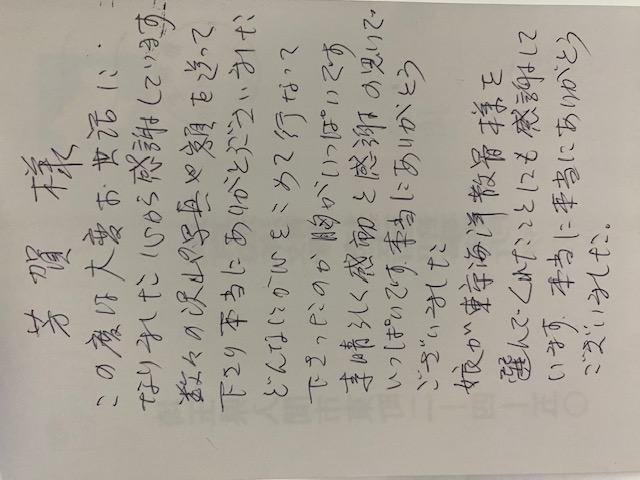 芳賀 様
この度は大変お世話に
なりました 心から感謝しています
数々の沢山写真や額を送って
下さり本当にありがとうございました
どんなにか心をこめて行なって
下さったのか胸がいっぱいです
素晴らしく感動と感謝の思いで
いっぱいです 本当にありがとう
ございました
娘が東京海洋散骨様を
選んでくれたことにも感謝して
います。本当に本当にありがとう
ございました。